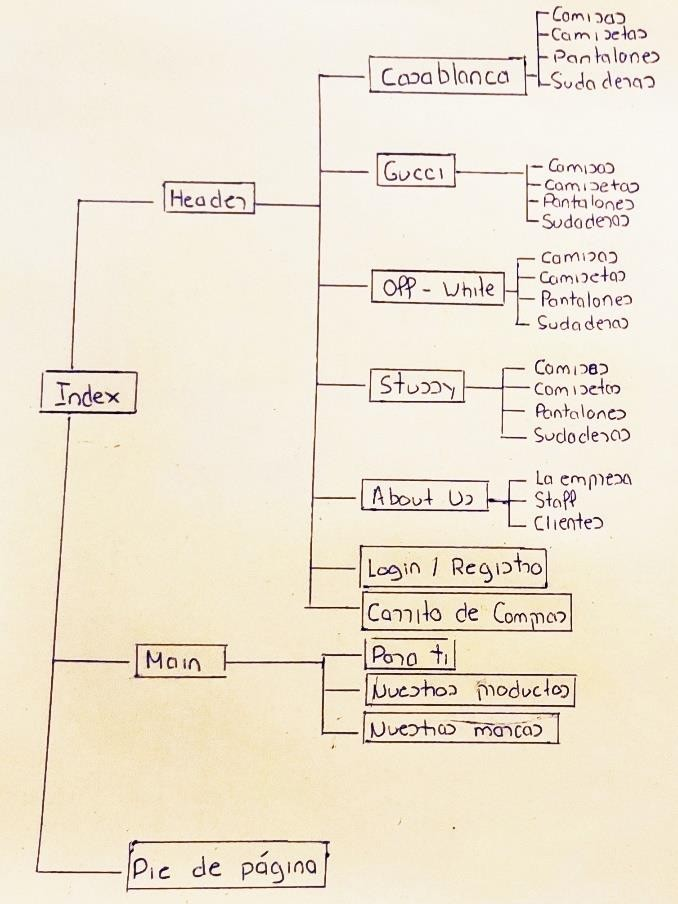 Camisas
Camisetas
Pantalones
Sudaderas
Casablanca
Gucci
Camisas
Camisetas
Pantalones
Sudaderas
Header
Off - White
Camisas
Camisetas
Pantalones
Sudaderas
Index
Stussy
Camisas
Camisetas
Pantalones
Sudaderas
About Us
La empresa
Staff
Clientes
Login / Registro
Carrito de Compras
Main
Para ti
Nuestros productos
Nuestras marcas
Pie de página